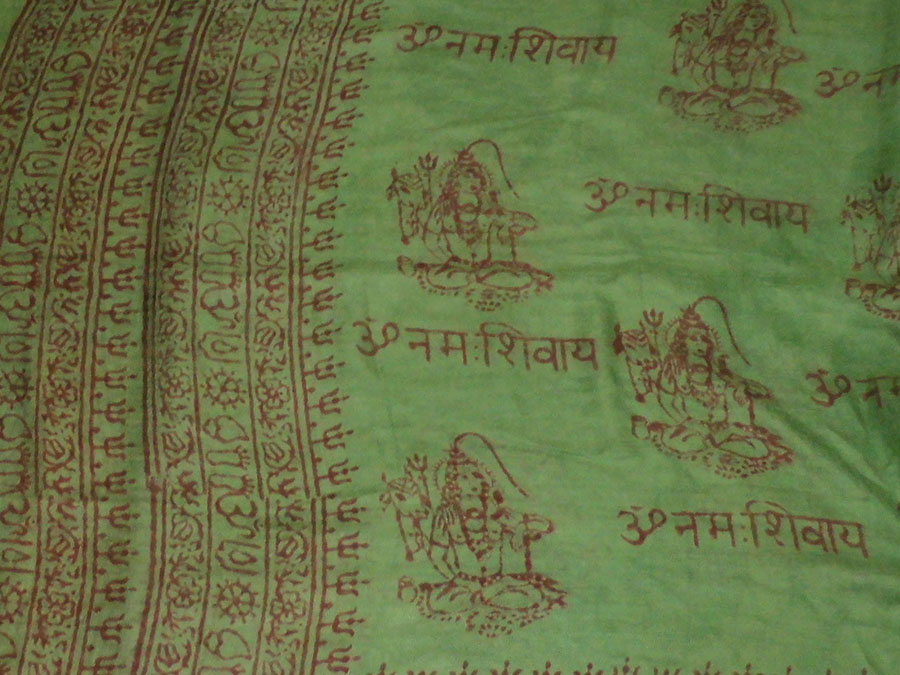 ॐ नमःशिवाय
ॐ न
ॐ नमःशिवाय
ॐ नमःशिवाय
ॐ नम
ॐ नमःशिवाय